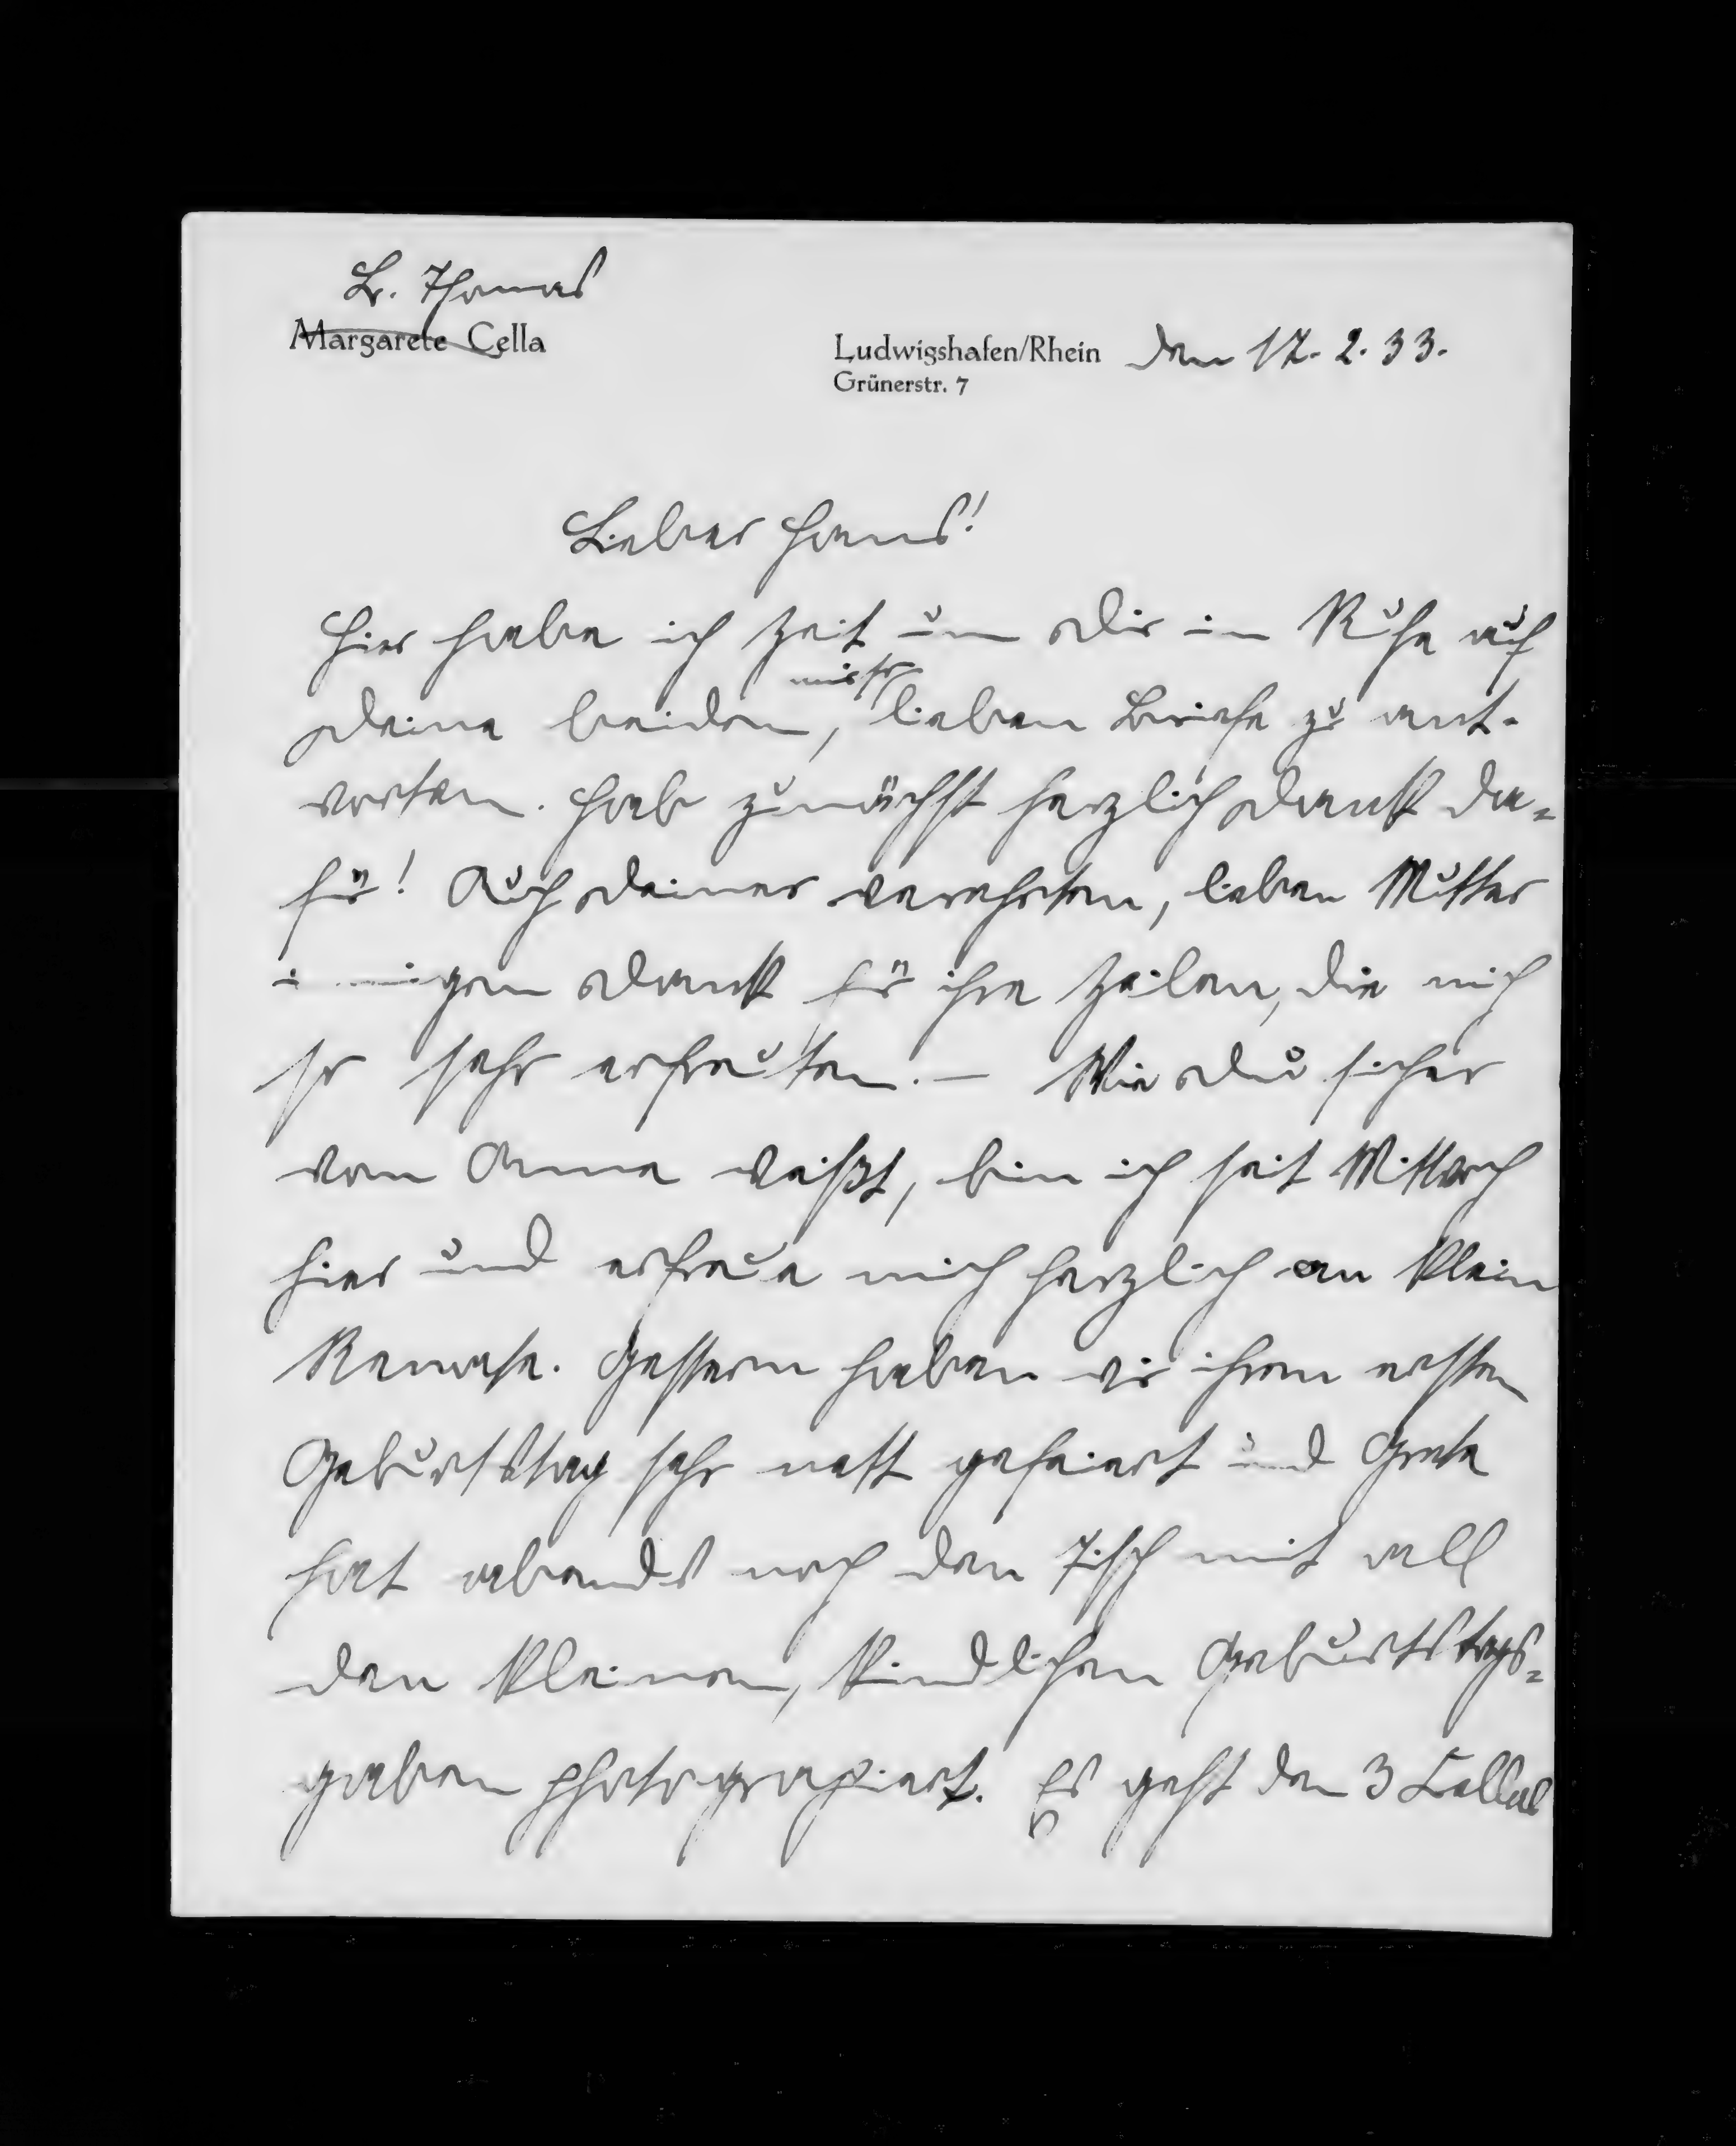 L. Thomas
Margarete Cella
Ludwigshafen/Rhein den 17. 2. 33.
Grünerstr. 7
Lieber Hans!
Hier habe ich Zeit um Dir in Ruhe auf
Deine beiden, mir so lieben Briefe zu ant-
worten. Hab zunächst herzlich Dank da=
für! Auch Deiner verehrten, lieben Mutter
innigen Dank für ihre Zeilen, die mich
so sehr erfreuten. — Wie Du sicher
von Anna weißt, bin ich seit Mittwoch
hier und erfreue mich herzlich an klein
Renate. Gestern haben wir ihren ersten
Geburtstag sehr nett gefeiert und Grete
hat abends noch den Tisch mit all
den kleinen, kindlichen Geburtstags=
gaben photographiert. Es geht den 3 Cellas